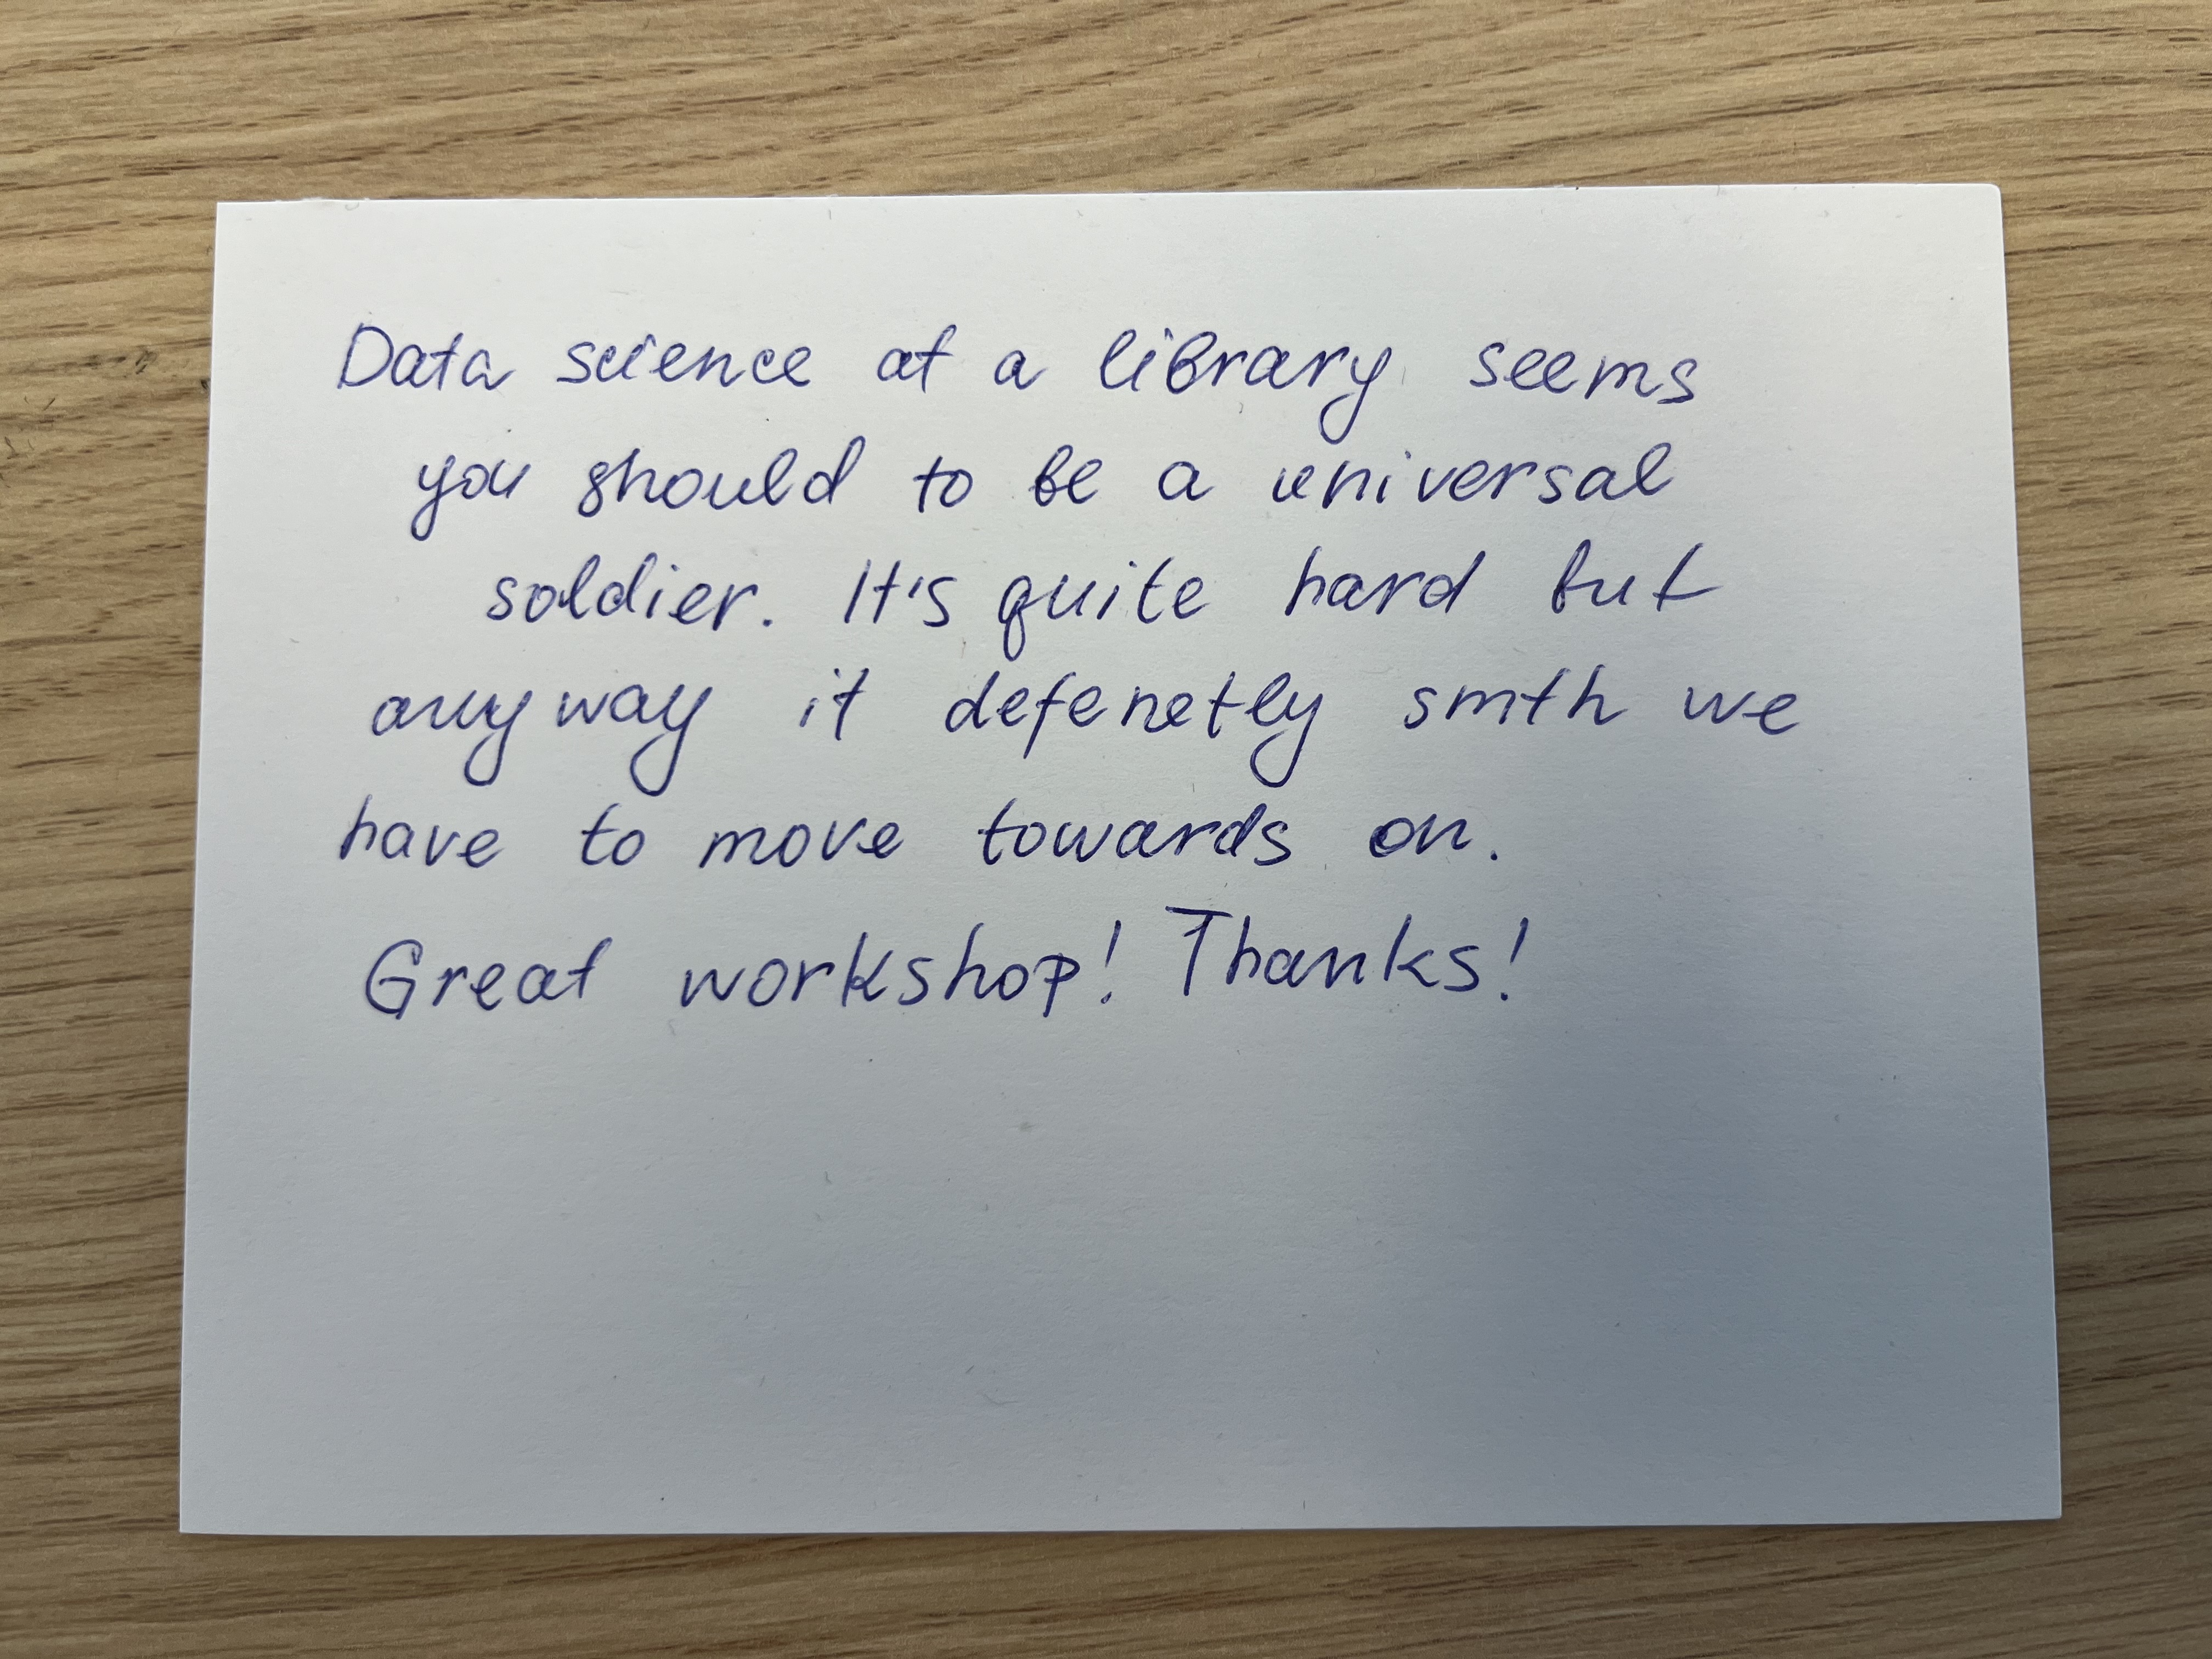 Data science at a library seems
you should to be a universal
soldier. It's quite hard but
anyway it defenetly smth we
have to move towards on.
Great workshop! Thanks!